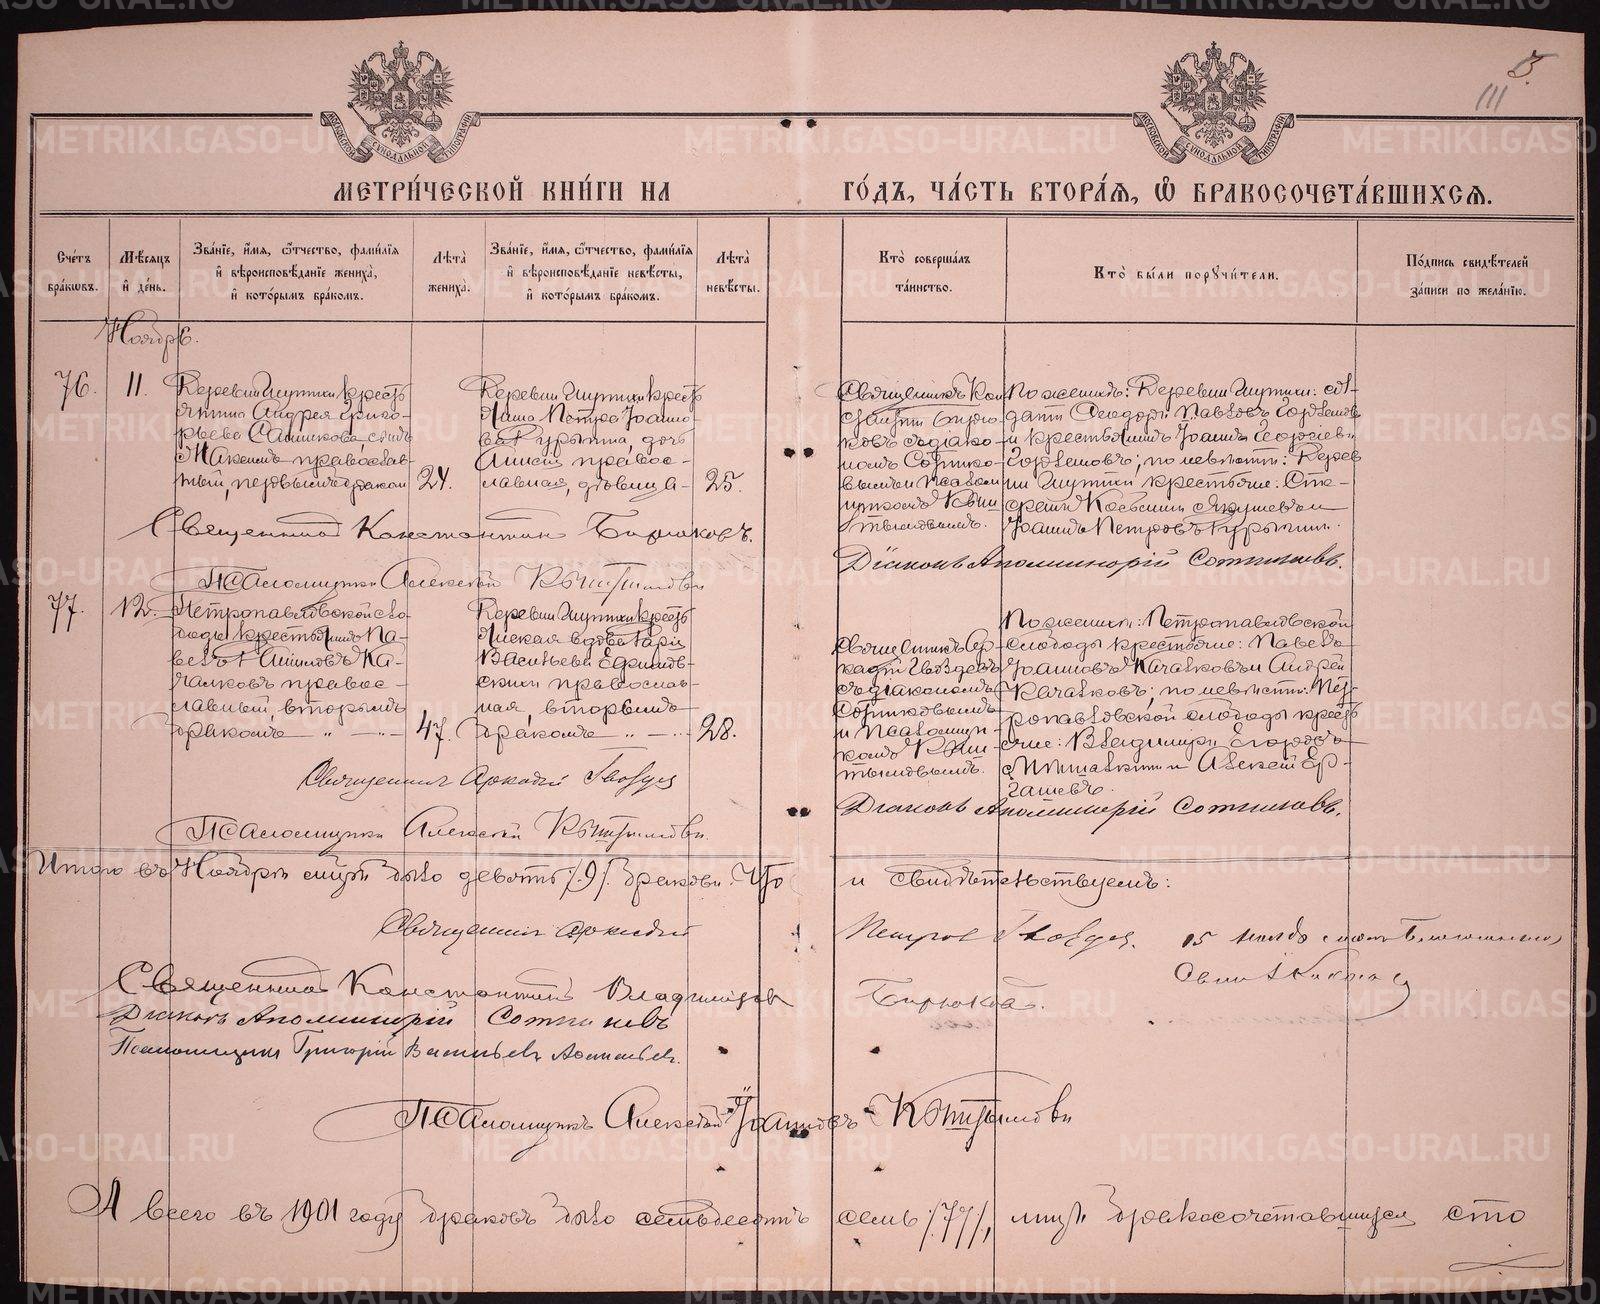 METRIKI.GASO-URAL.RU
МОСКОВСКОЙ СѴНОДАЛЬНОЙ ТИПОГРАФІИ
МОСКОВСКОЙ СѴНОДАЛЬНОЙ ТИПОГРАФІИ
111
МЕТРИ́ЧЕСКОЙ КНИ́ГИ НА ГО́ДЪ, ЧА́СТЬ ВТОРА́Я, Ѡ҆ БРАКОСОЧЕТА́ВШИХСЯ.
Сче́тъ бра́кѡвъ.
Мѣ́сяцъ и҆ де́нь.
Зва́нїе, и҆́мя, ѻ҆́тчество, фами́лїя
и҆ вѣроисповѣ́данїе жениха̀,
и҆ кото́рымъ бра́комъ.
Лѣ́та жениха̀.
Зва́нїе, и҆́мя, ѻ҆́тчество, фами́лїя
и҆ вѣроисповѣ́данїе невѣ́сты,
и҆ кото́рымъ бра́комъ.
Лѣ́та невѣ́сты.
Кто̀ соверша́лъ та́инство.
Кто̀ бы́ли порꙋчи́тели.
По́дпись свидѣ́телей за́писи по жела́нїю.
Ноябрь.
76.
11.
Деревни Шутихи кресть
янина Андрея Григо-
рьева Сашникова сынъ
Максимъ православ-
ный, первымъ бракомъ
24.
Деревни Шутихи кресть
янина Петра Іоанно
ва Курыгина, дочь
православная, дѣвица
25.
Священникъ Кон
стантинъ Бирю
ковъ съ діако-
номъ Сотнико-
вымъ и псалом
щикомъ Кыш
тымовымъ.
По женихѣ: деревни Шутихи: сол-
датъ Ѳеодоръ Павловъ
и крестьянинъ Іоаннъ Георгіевъ
по невѣстѣ: дерев
ни Шутихи крестьяне: Сте-
фанъ Косьминъ Якушевъ и
Іоаннъ Петровъ Курыгинъ.
Священникъ Константинъ Бирюковъ.
Діаконъ Аполлинарій Сотниковъ.
Псаломщикъ Алексѣй Кыштымовъ
77.
12.
Петропавловской сло-
боды крестьянинъ Па-
велъ Ка-
чалковъ правос-
лавный, вторымъ
бракомъ
47.
Деревни Шутихи кресть
янская вдова Дарія
Васильева
православ-
ная, вторымъ
бракомъ
28.
Священникъ Ар-
кадій Гвоздевъ
съ діакономъ
Сотниковымъ
и псаломщи-
комъ Кыш
тымовымъ.
По женихѣ: Петропавловской
слободы крестьяне: Павелъ
Іоанновъ Качалковъ и Андрей
Качалковъ; по невѣстѣ: Пет-
ропавловской слободы кресть
яне: Владимиръ Егоровъ
и Алексѣй Ер-
гашевъ.
Священникъ Аркадій Гвоздевъ
Діаконъ Аполлинарій Сотниковъ.
Псаломщикъ Алексѣй Кыштымовъ.
Итого въ Ноябрѣ мѣсяцѣ было девять /9/ браковъ. Что и свидѣтельствуемъ:
Священникъ Аркадій Петровъ Гвоздевъ.
Священникъ Константинъ Владиміровъ Бирюковъ.
Діаконъ Аполлинарій Сотниковъ
Псаломщикъ Григорій Васильевъ
Псаломщикъ Алексѣй Іоанновъ Кыштымовъ
А всего въ 1901 году браковъ было семьдесятъ семь /77/, лицъ бракосочетавшихся сто